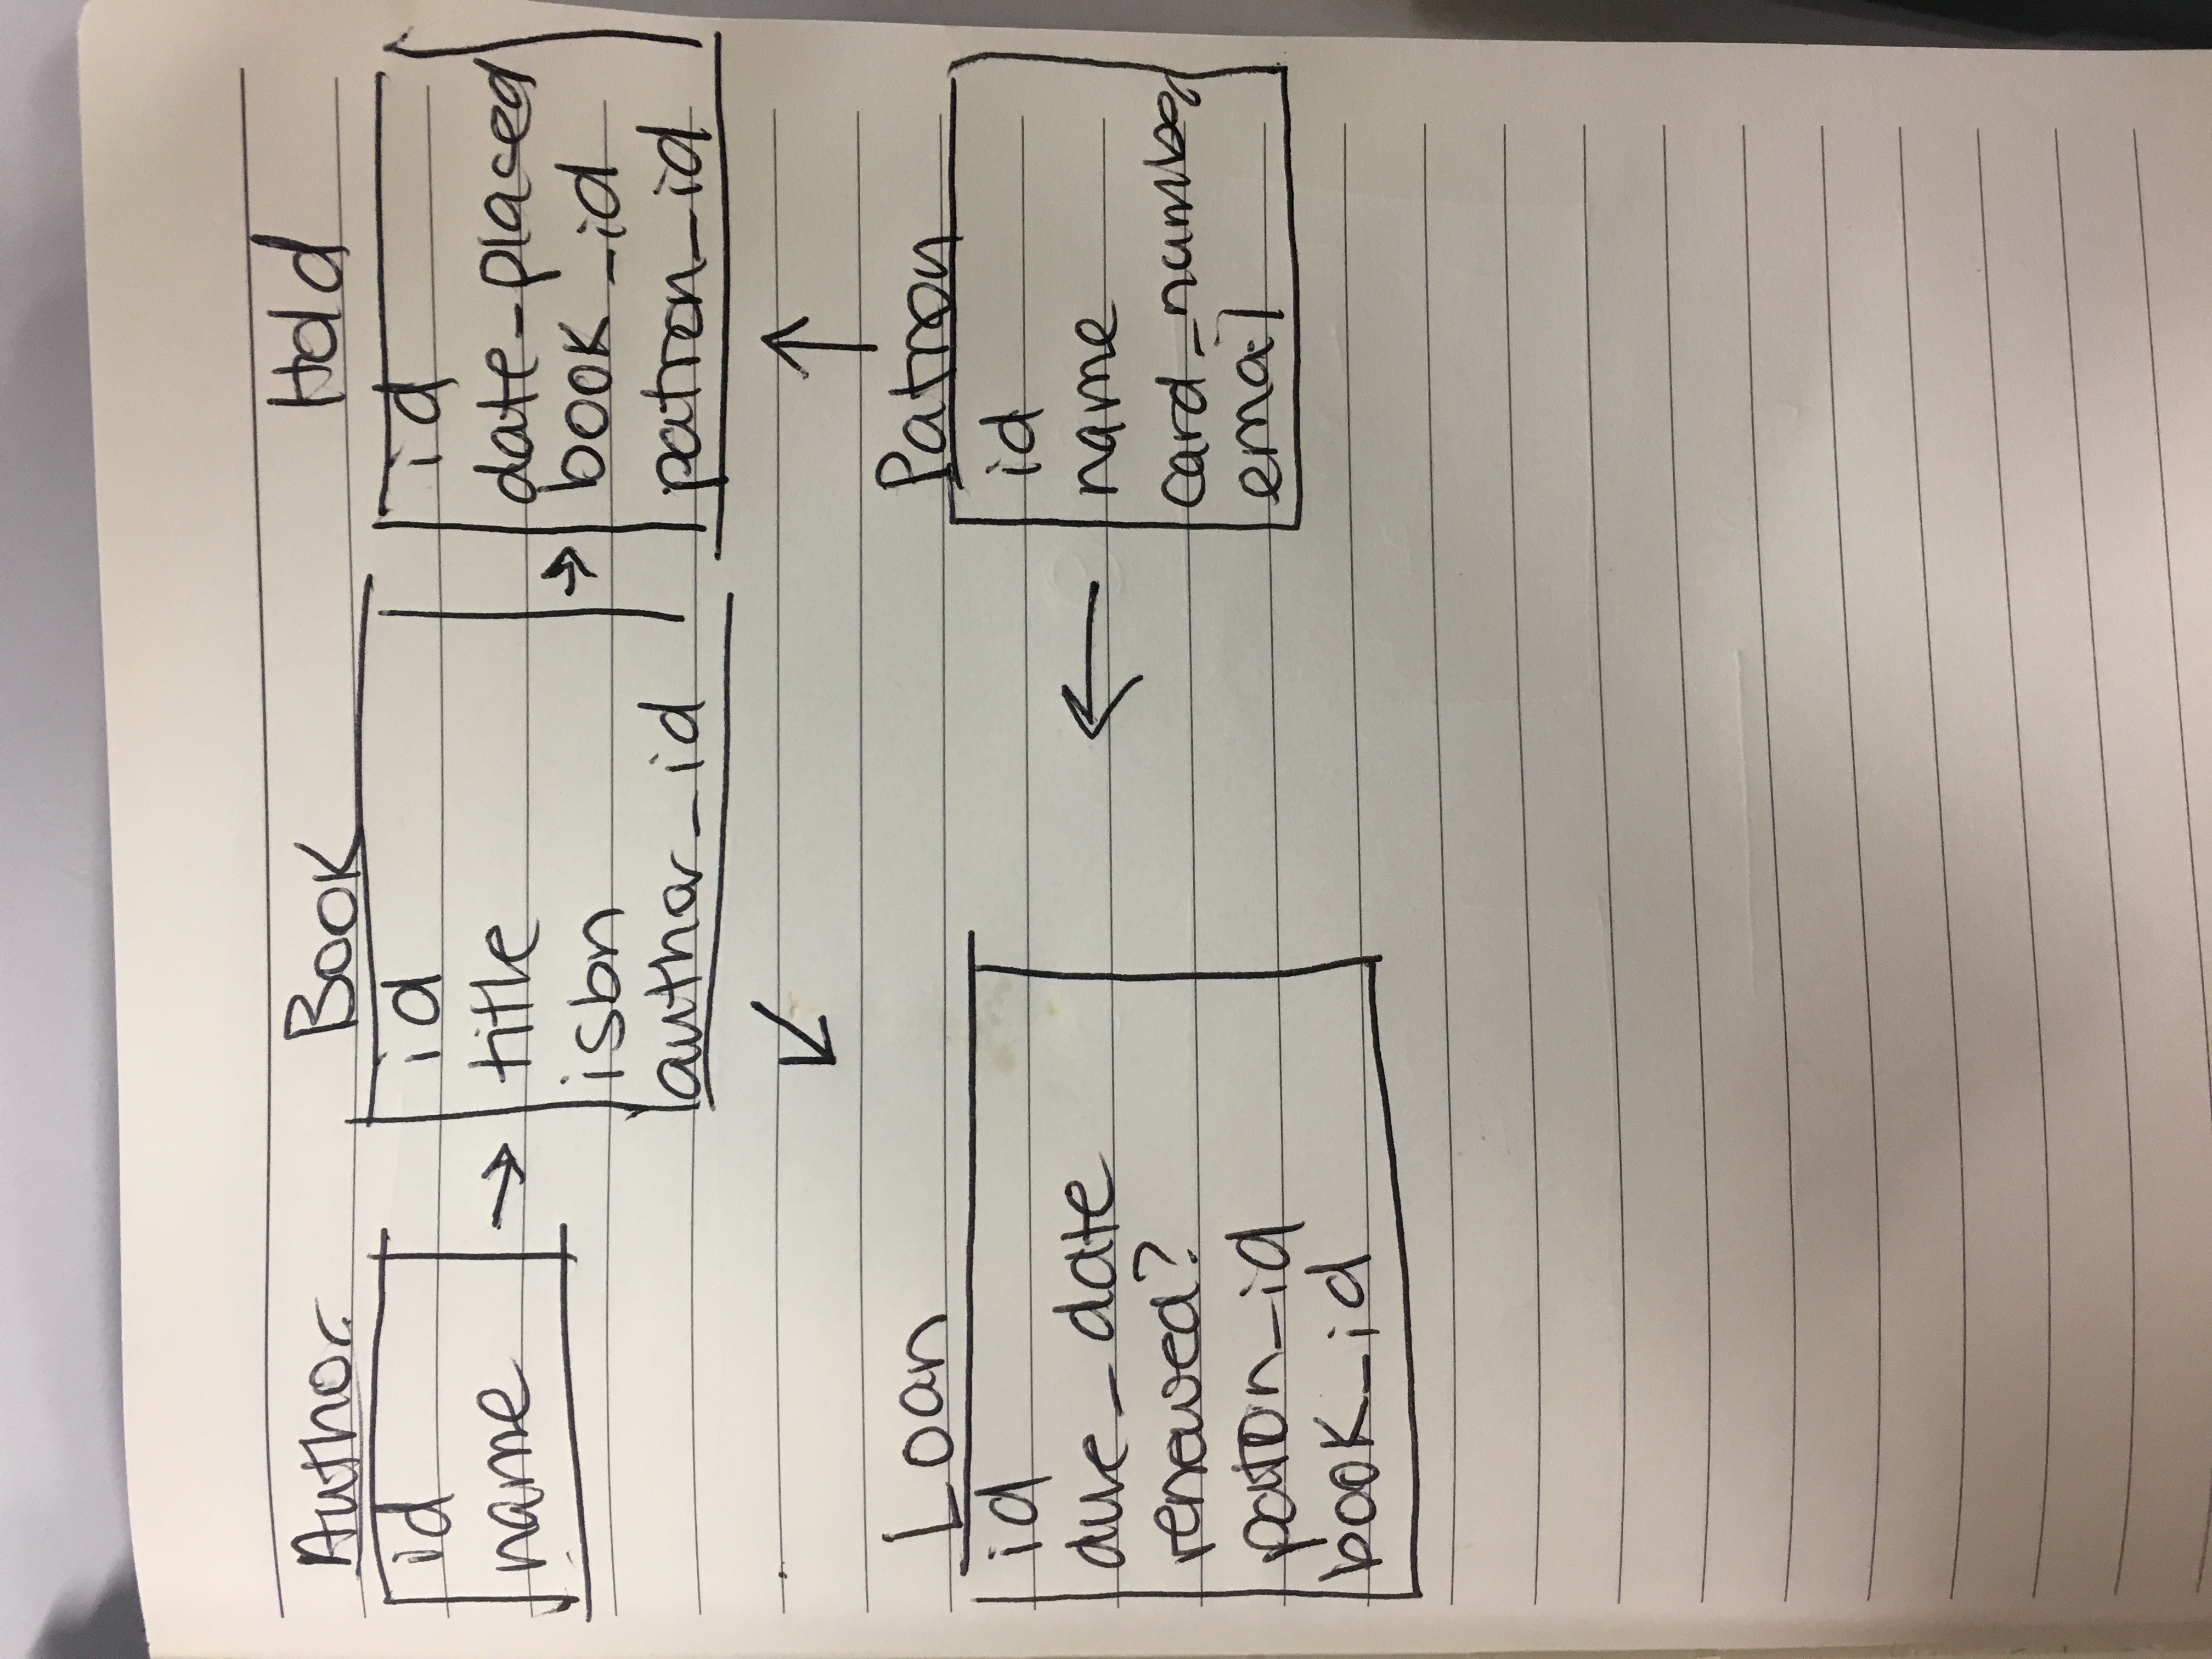 Author
id
name
Book
id
title
isbn
author_id
Hold
id
date_placed
book_id
patron_id
Loan
id
due_date
renewed?
patron_id
book_id
Patron
id
name
card_number
email